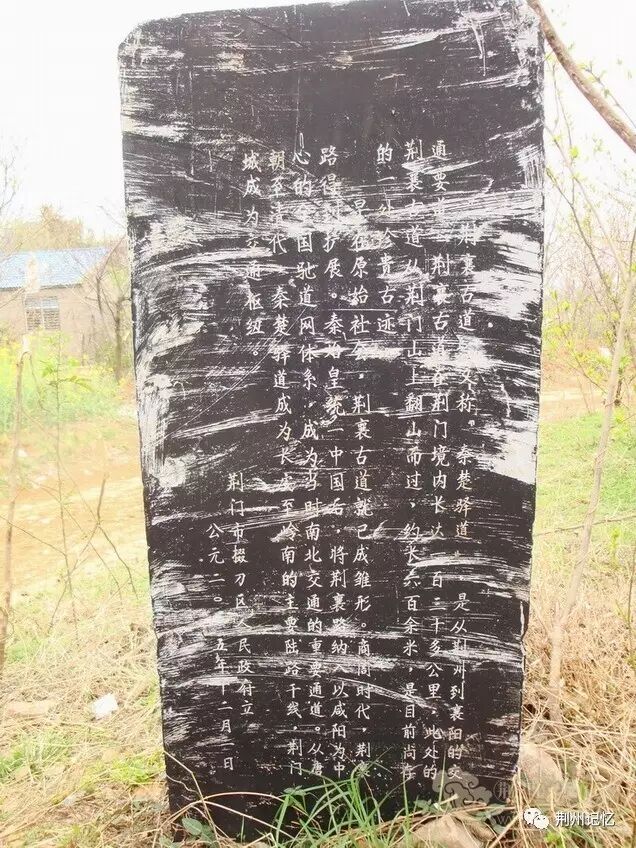 荆襄古道 又称 秦楚驿道 是从荆州到襄阳的交
通要道 荆襄古道在荆门境内长达一百二十多公里 此处的
荆襄古道从荆门山上翻山而过，约长六百余米，是目前尚存
的一处珍贵古迹
早在原始社会，荆襄古道就已成雏形。商周时代，荆襄
路得到扩展。秦始皇统一中国后，将荆襄路纳入以咸阳为中
心的全国驰道网体系，成为当时南北交通的重要通道。从唐
朝至清代 秦楚驿道成为长安至岭南的主要陆路干线，荆门
城成为交通枢纽。
荆门市掇刀区人民政府立
公元二〇 五年十二月 日
荆州记忆